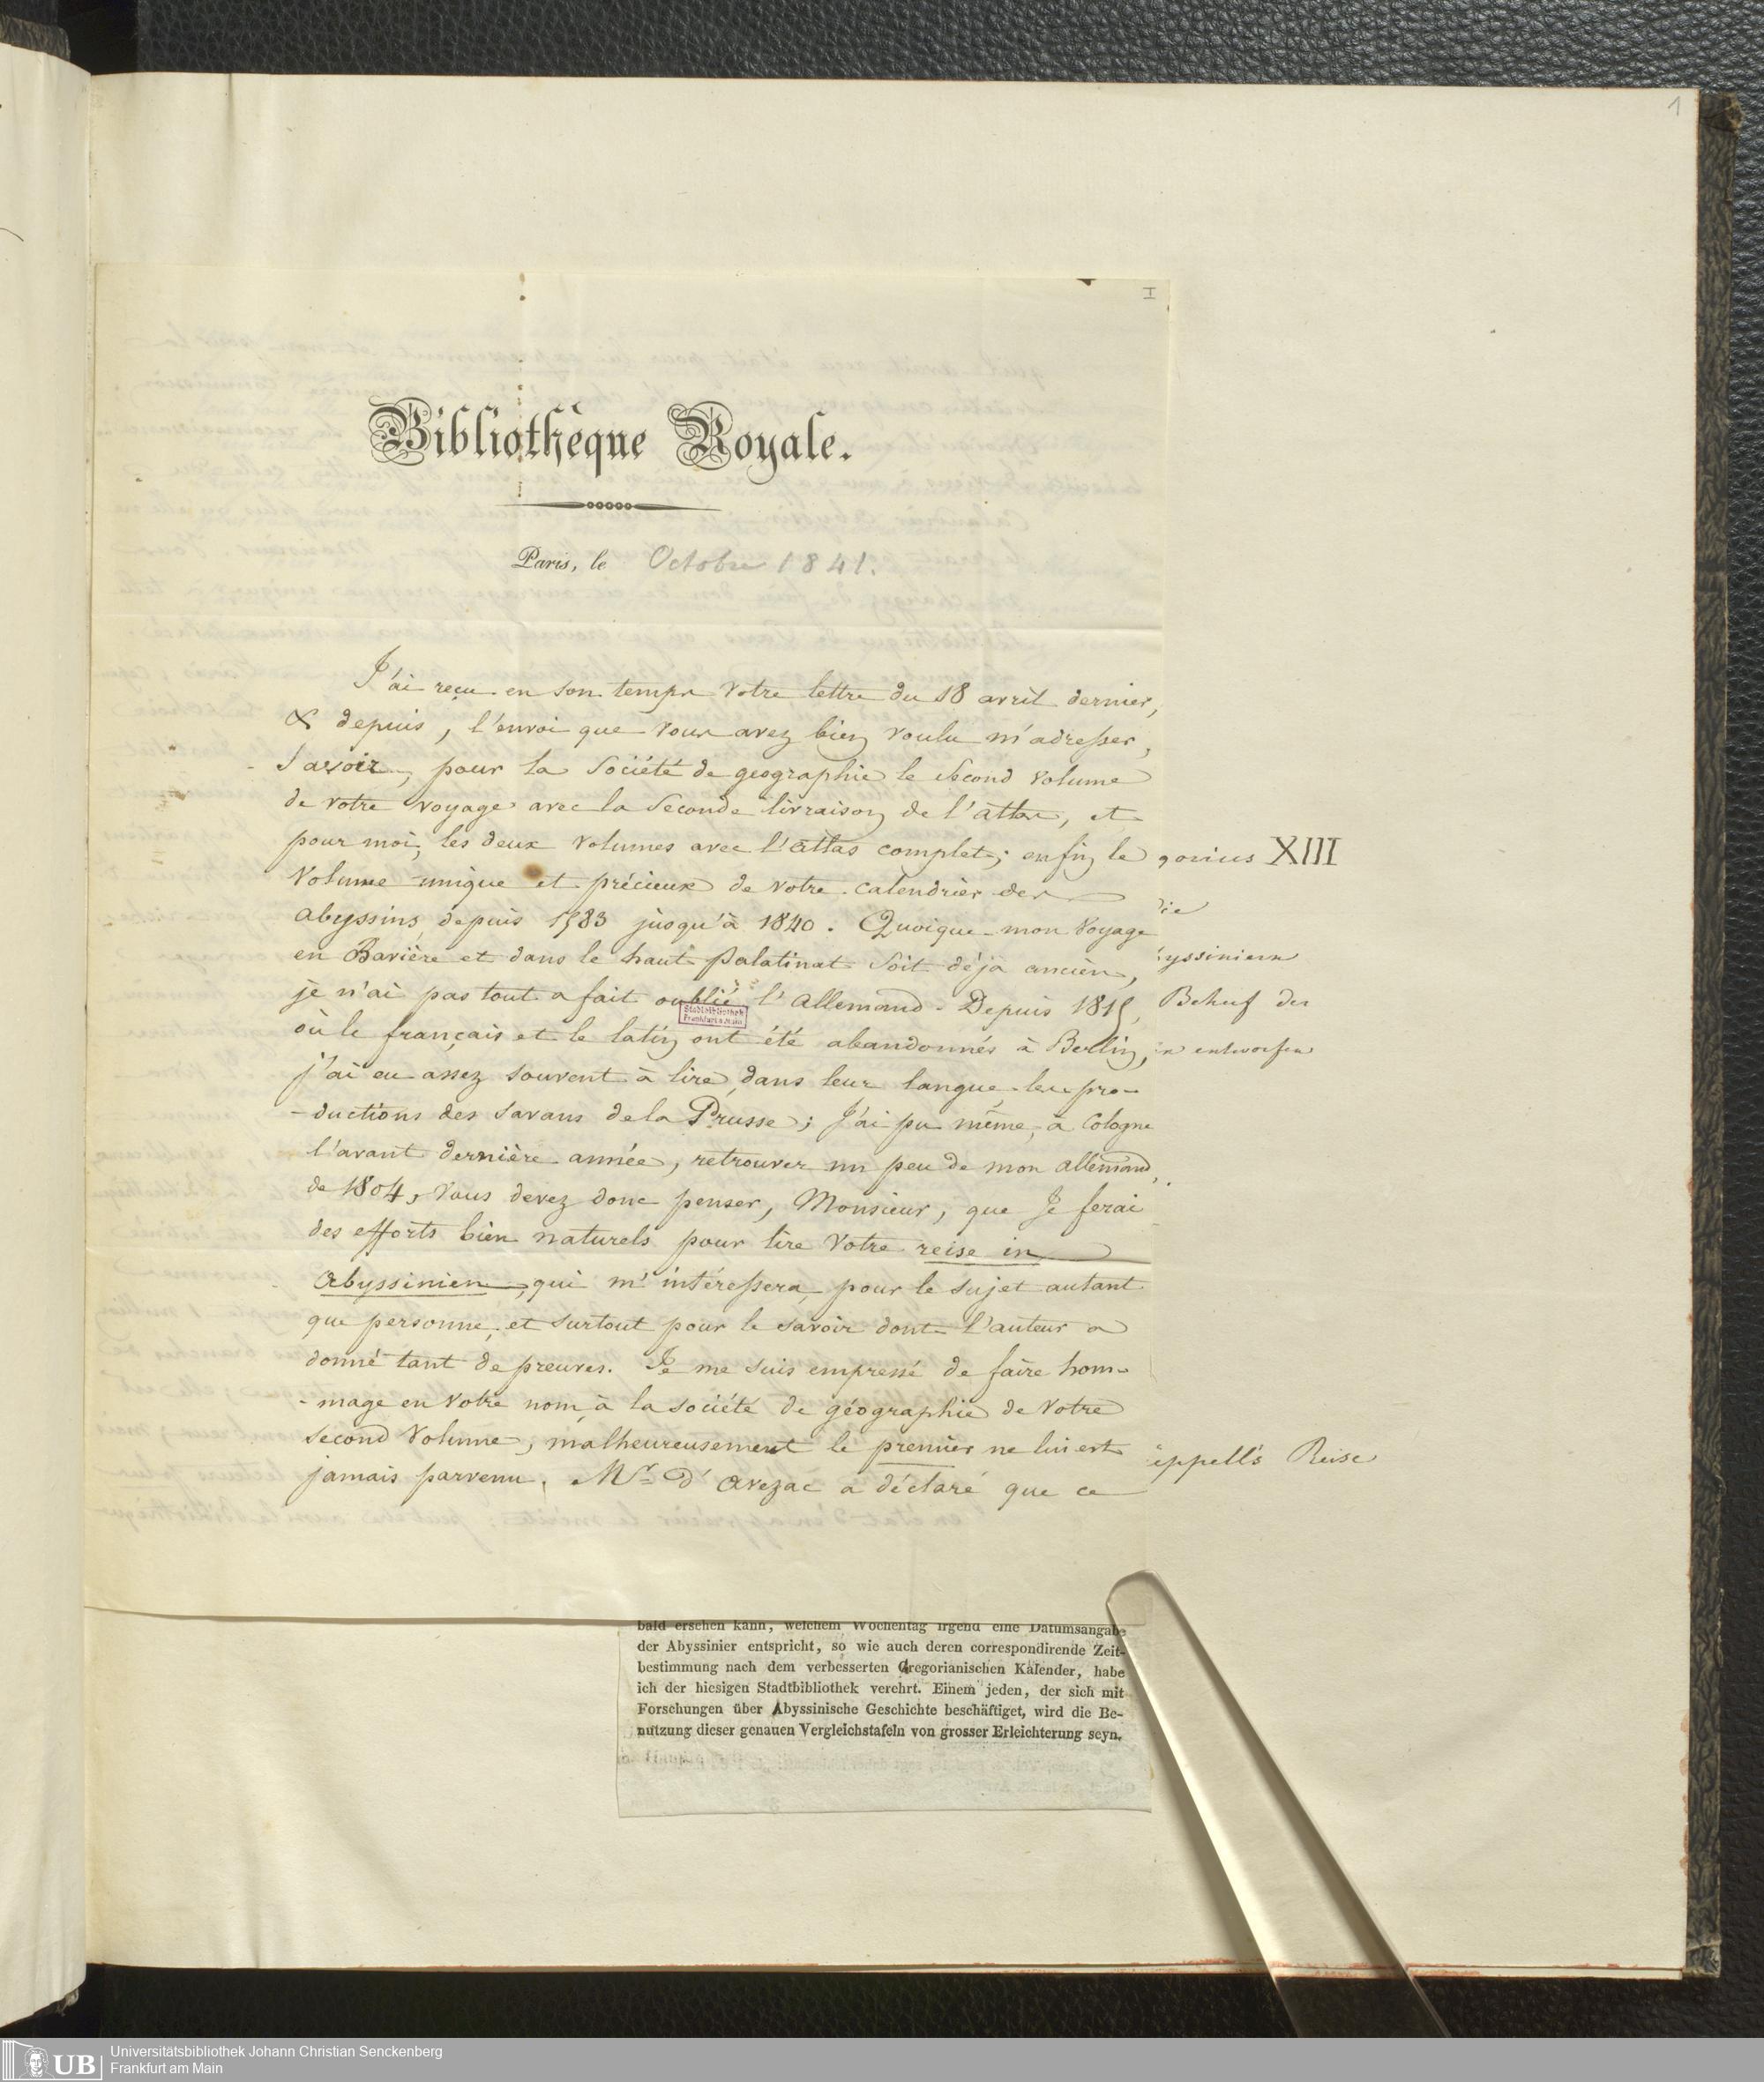 1
I
Bibliothèque Royale.
Paris, le Octobre 1841.
J'ai reçu en son temps votre lettre du 18 avril dernier,
& depuis, l'envoi que vous avez bien voulu m'adresser,
Savoir, pour la Société de geographie le Second volume
de votre voyage avec la Seconde livraison de l'atlas, et
pour moi, les deux volumes avec l'atlas complet; enfin le
volume unique et précieux de votre calendrier des
abyssins, depuis 1583 jusqu'à 1840. Quoique mon voyage
en Bavière et dans le haut palatinat soit déjà ancien,
je n'ai pas tout a fait oublié l'allemand. Depuis 1815,
où le français et le latin ont été abandonnés à Berlin,
j'ai eu assez souvent à lire, dans leur langue, les pro-
-ductions des savans de la Prusse; j'ai pu même, a Cologne
l'avant dernière année, retrouver un peu de mon allemand,
de 1804, vous devez donc penser, Monsieur, que je ferai
des efforts bien naturels pour lire votre reise in
abyssinien, qui m'intéressera, pour le sujet autant
que personne, et surtout pour le savoir dont l'auteur a
donné tant de preuves. Je me suis empressé de faire hom-
-mage en votre nom à la société de géographie de votre
second volume; malheureusement le premier ne lui est
jamais parvenu. Mr d'avezac a déclaré que ce
Stadtbibliothek
Frankfurt a. Main
gorius XIII
die
yssiniern
Behuf der
in entworfen
üppell's Reise
bald ersehen kann, welchem Wochentag irgend eine Datumsangabe
der Abyssinier entspricht, so wie auch deren correspondirende Zeit-
bestimmung nach dem verbesserten Gregorianischen Kalender, habe
ich der hiesigen Stadtbibliothek verehrt. Einem jeden, der sich mit
Forschungen über Abyssinische Geschichte beschäftiget, wird die Be-
nutzung dieser genauen Vergleichstafeln von grosser Erleichterung seyn.
UB
Universitätsbibliothek Johann Christian Senckenberg
Frankfurt am Main